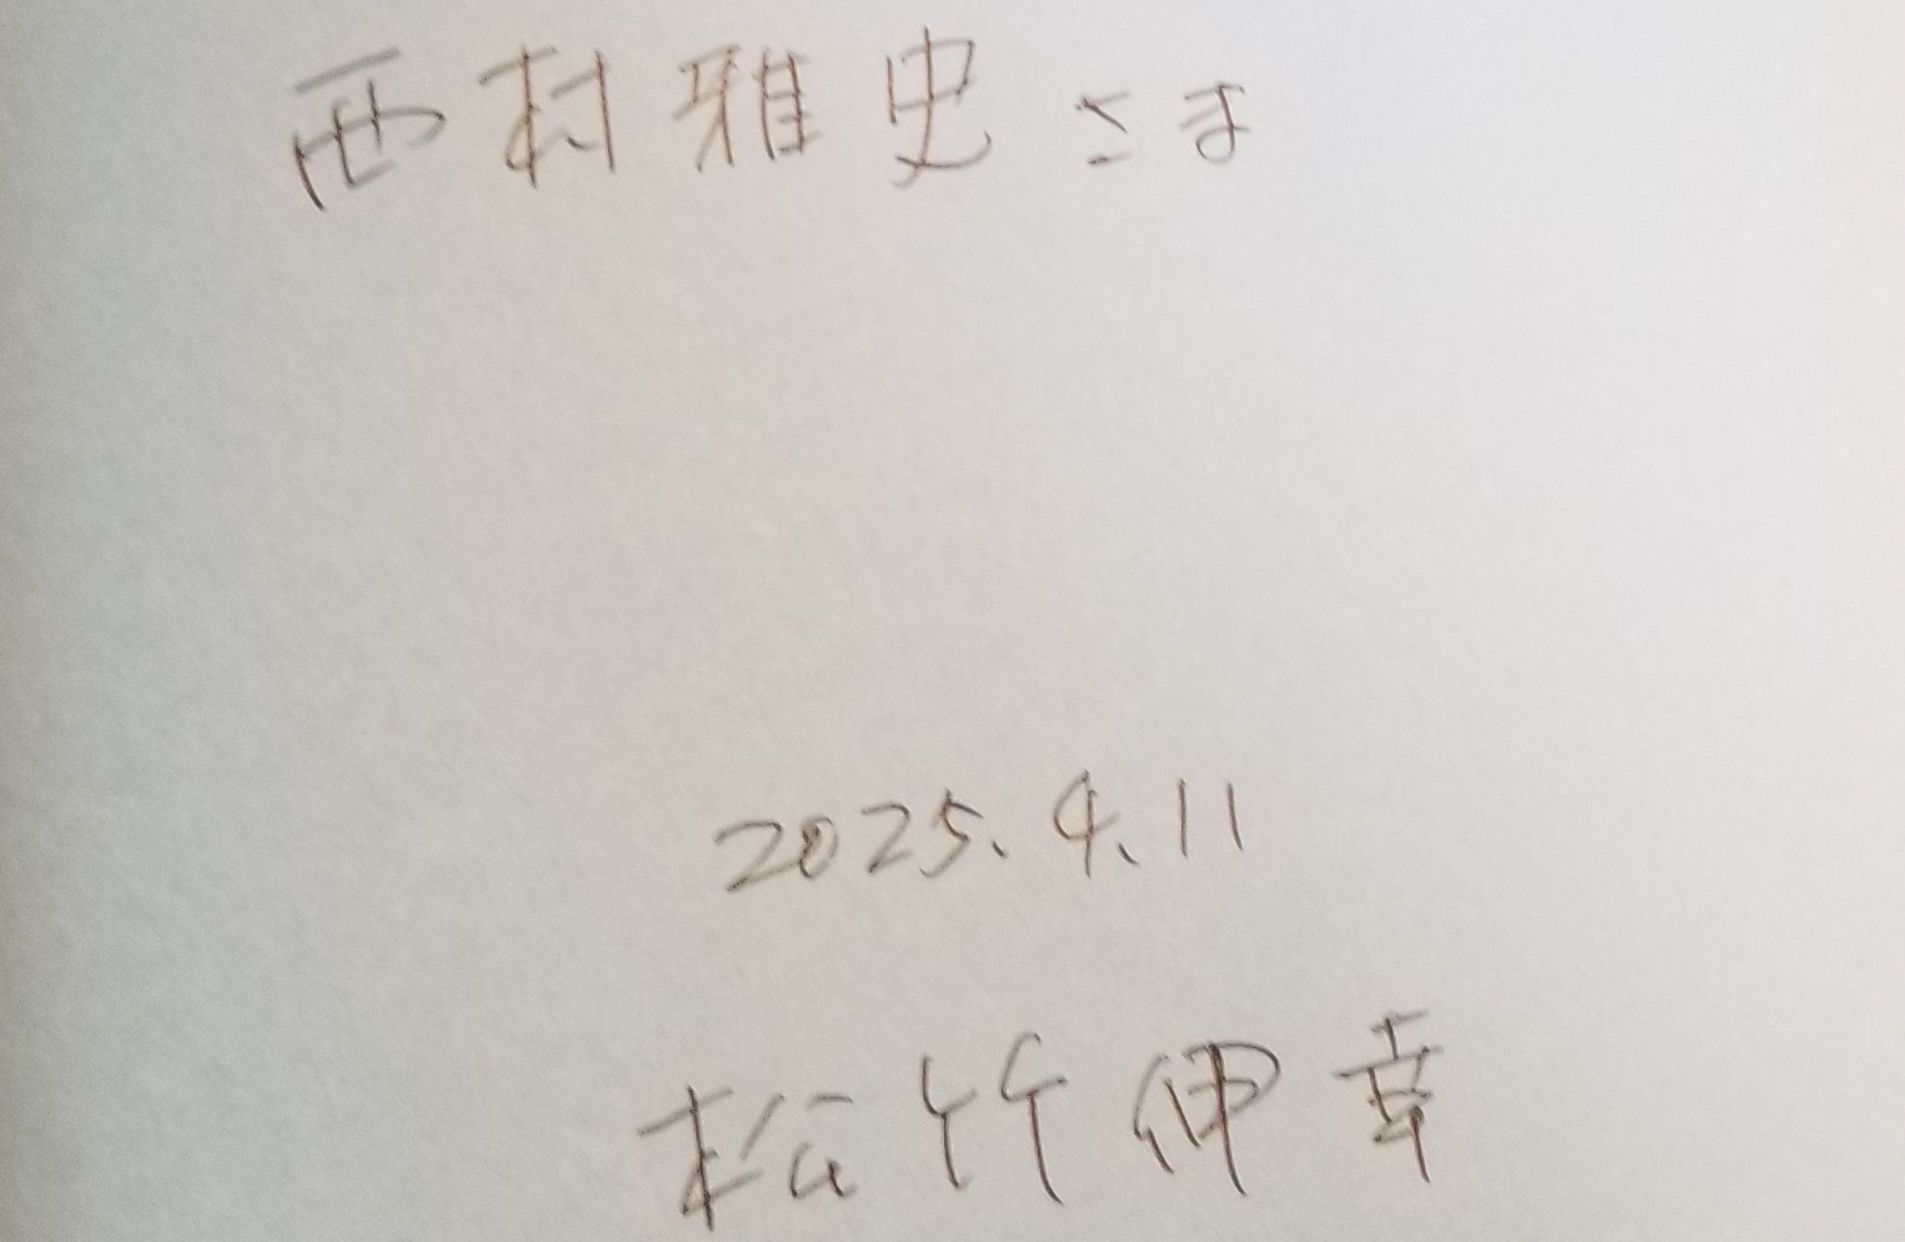 西村雅史さま
2025.4.11
松竹伸幸